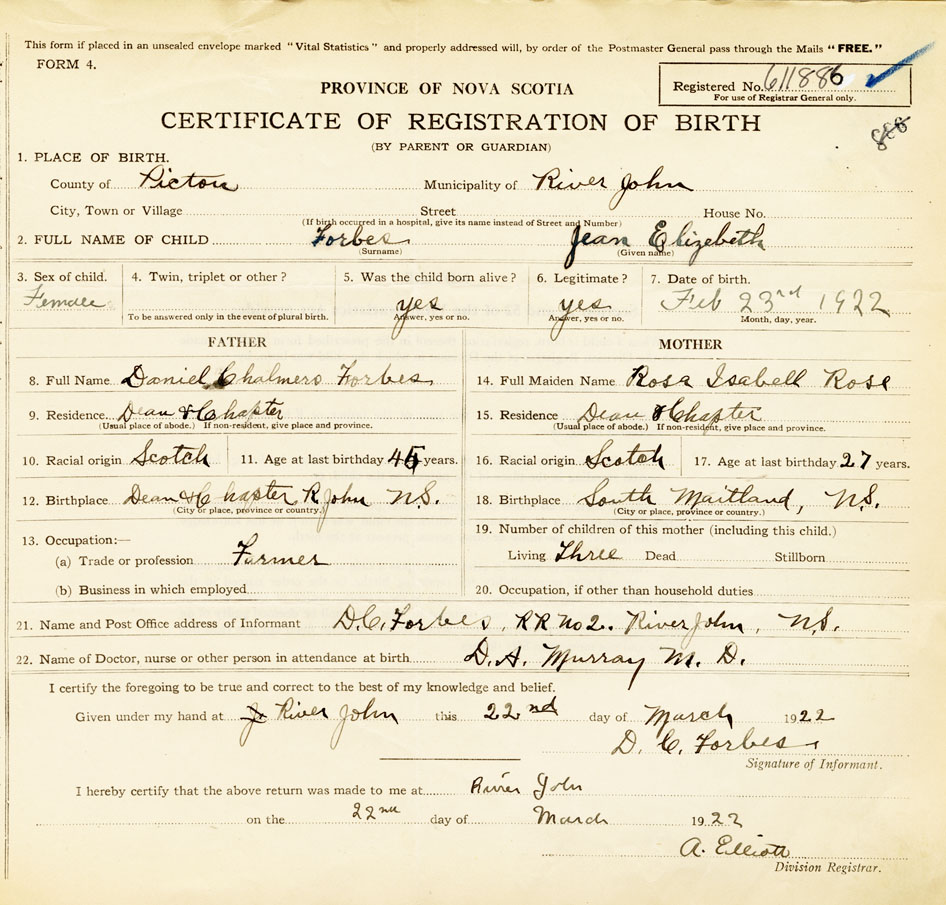 This form if placed in an unsealed envelope marked "Vital Statistics" and properly addressed will, by order of the Postmaster General pass through the Mails "FREE."
FORM 4.
Registered No. 611886
For use of Registrar General only.
PROVINCE OF NOVA SCOTIA
CERTIFICATE OF REGISTRATION OF BIRTH
886
(BY PARENT OR GUARDIAN)
1. PLACE OF BIRTH.
County of Pictou Municipality of River John
City, Town or Village Street House No.
(If birth occurred in a hospital, give its name instead of Street and Number)
2. FULL NAME OF CHILD Forbes Jean Elizebeth
(Surname) (Given name)
3. Sex of child. 4. Twin, triplet or other? 5. Was the child born alive? 6. Legitimate? 7. Date of birth.
Female yes yes Feb 23rd 1922
To be answered only in the event of plural birth. Answer, yes or no. Answer, yes or no. Month, day, year.
FATHER MOTHER
8. Full Name Daniel Chalmers Forbes 14. Full Maiden Name Rosa Isabell Rose
9. Residence Dean & Chapter 15. Residence Dean & Chapter
(Usual place of abode.) If non-resident, give place and province. (Usual place of abode.) If non-resident, give place and province.
10. Racial origin Scotch 11. Age at last birthday 45 years. 16. Racial origin Scotch 17. Age at last birthday 27 years.
12. Birthplace Dean & Chapter R. John N.S. 18. Birthplace South Maitland, N.S.
(City or place, province or country.) (City or place, province or country.)
13. Occupation:— 19. Number of children of this mother (including this child.)
(a) Trade or profession Farmer Living Three Dead Stillborn
(b) Business in which employed 20. Occupation, if other than household duties
21. Name and Post Office address of Informant D.C. Forbes, RR No 2. River John, N.S.
22. Name of Doctor, nurse or other person in attendance at birth D. A. Murray M. D.
I certify the foregoing to be true and correct to the best of my knowledge and belief.
Given under my hand at River John this 22nd day of March 1922
D. C. Forbes
Signature of Informant.
I hereby certify that the above return was made to me at River John
on the 22nd day of March 1922
A. Elliott
Division Registrar.